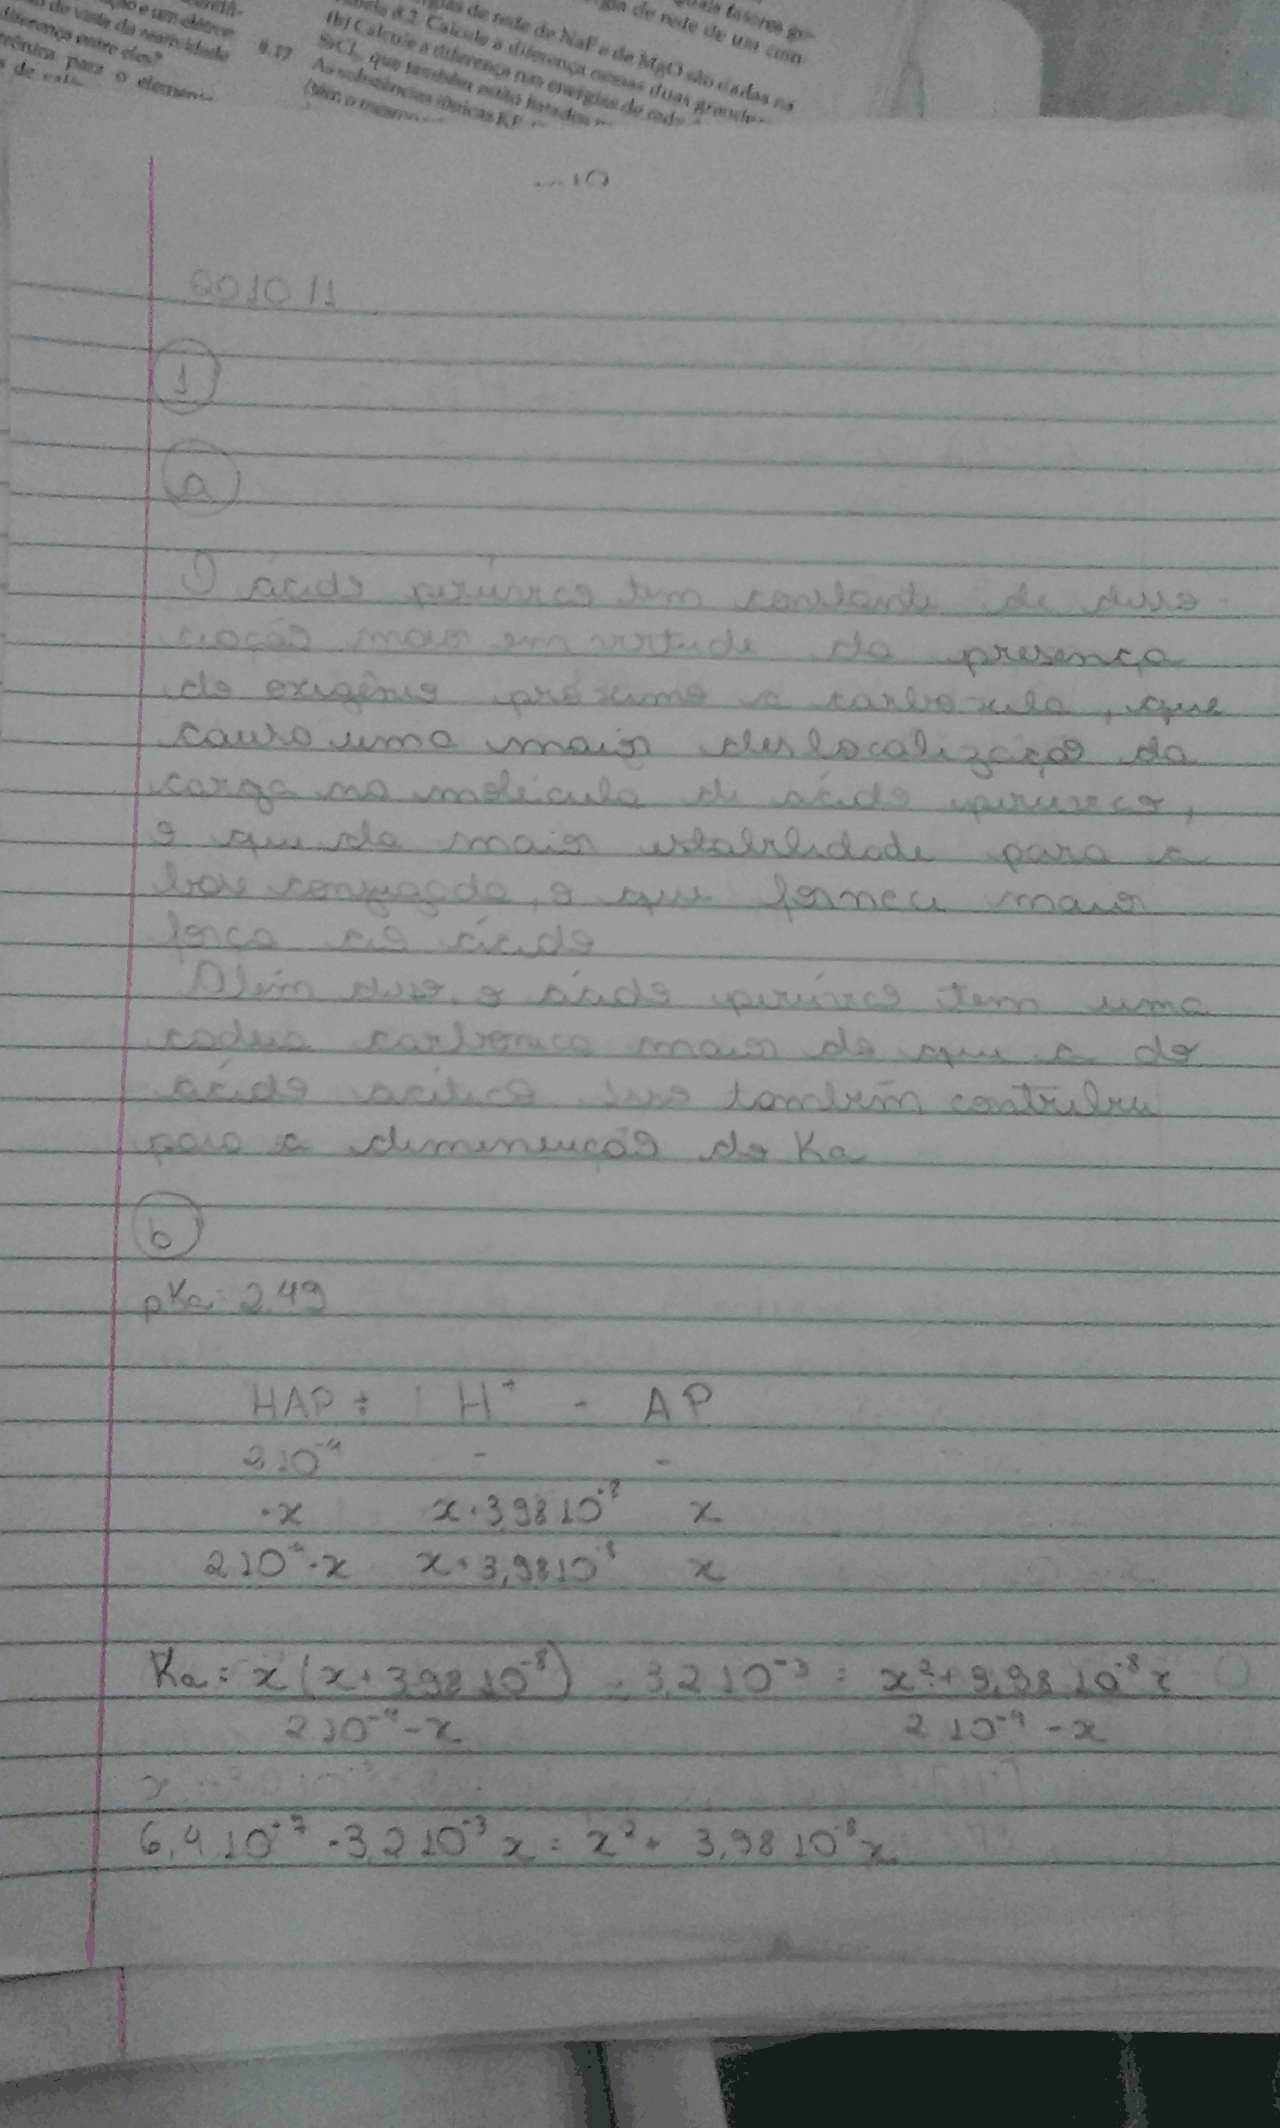 de vista da reatividade
diferença entre eles?
para o element
8.17
gias de rede de NaF e de MgO são dadas na
Tabela 8.2. Calcule a diferença nessas duas grande
(b) Calcule a diferença nas energias de rede
que também estão listados
As substâncias iônicas KF
gia de rede de um com
quais fatores go
10
1
a
O ácido pirúvico tem constante de disso
ciação maior em virtude da presença
do oxigênio próximo a carboxila, que
causa uma maior deslocalização da
carga na molécula de ácido pirúvico,
o que da maior estabilidade para a
base conjugada, o que fornece maior
força ao ácido
Além disso, o ácido pirúvico tem uma
cadeia carbonica maior do que a do
ácido acético. Isso também contribui
para a diminuição do Ka
b
pKa: 2,49
HAP ⇌ H⁺ + AP
2.10⁻⁴ - -
-x x+3,98 10⁻⁸ x
2 10⁻⁴-x x+3,98 10⁻⁸ x
Ka = x(x+3,98 10⁻⁸) = 3,2 10⁻³ = x²+3,98 10⁻⁸ x
2 10⁻⁴-x 2 10⁻⁴-x
6,4 10⁻⁷ - 3,2 10⁻³ x = x² + 3,98 10⁻⁸ x